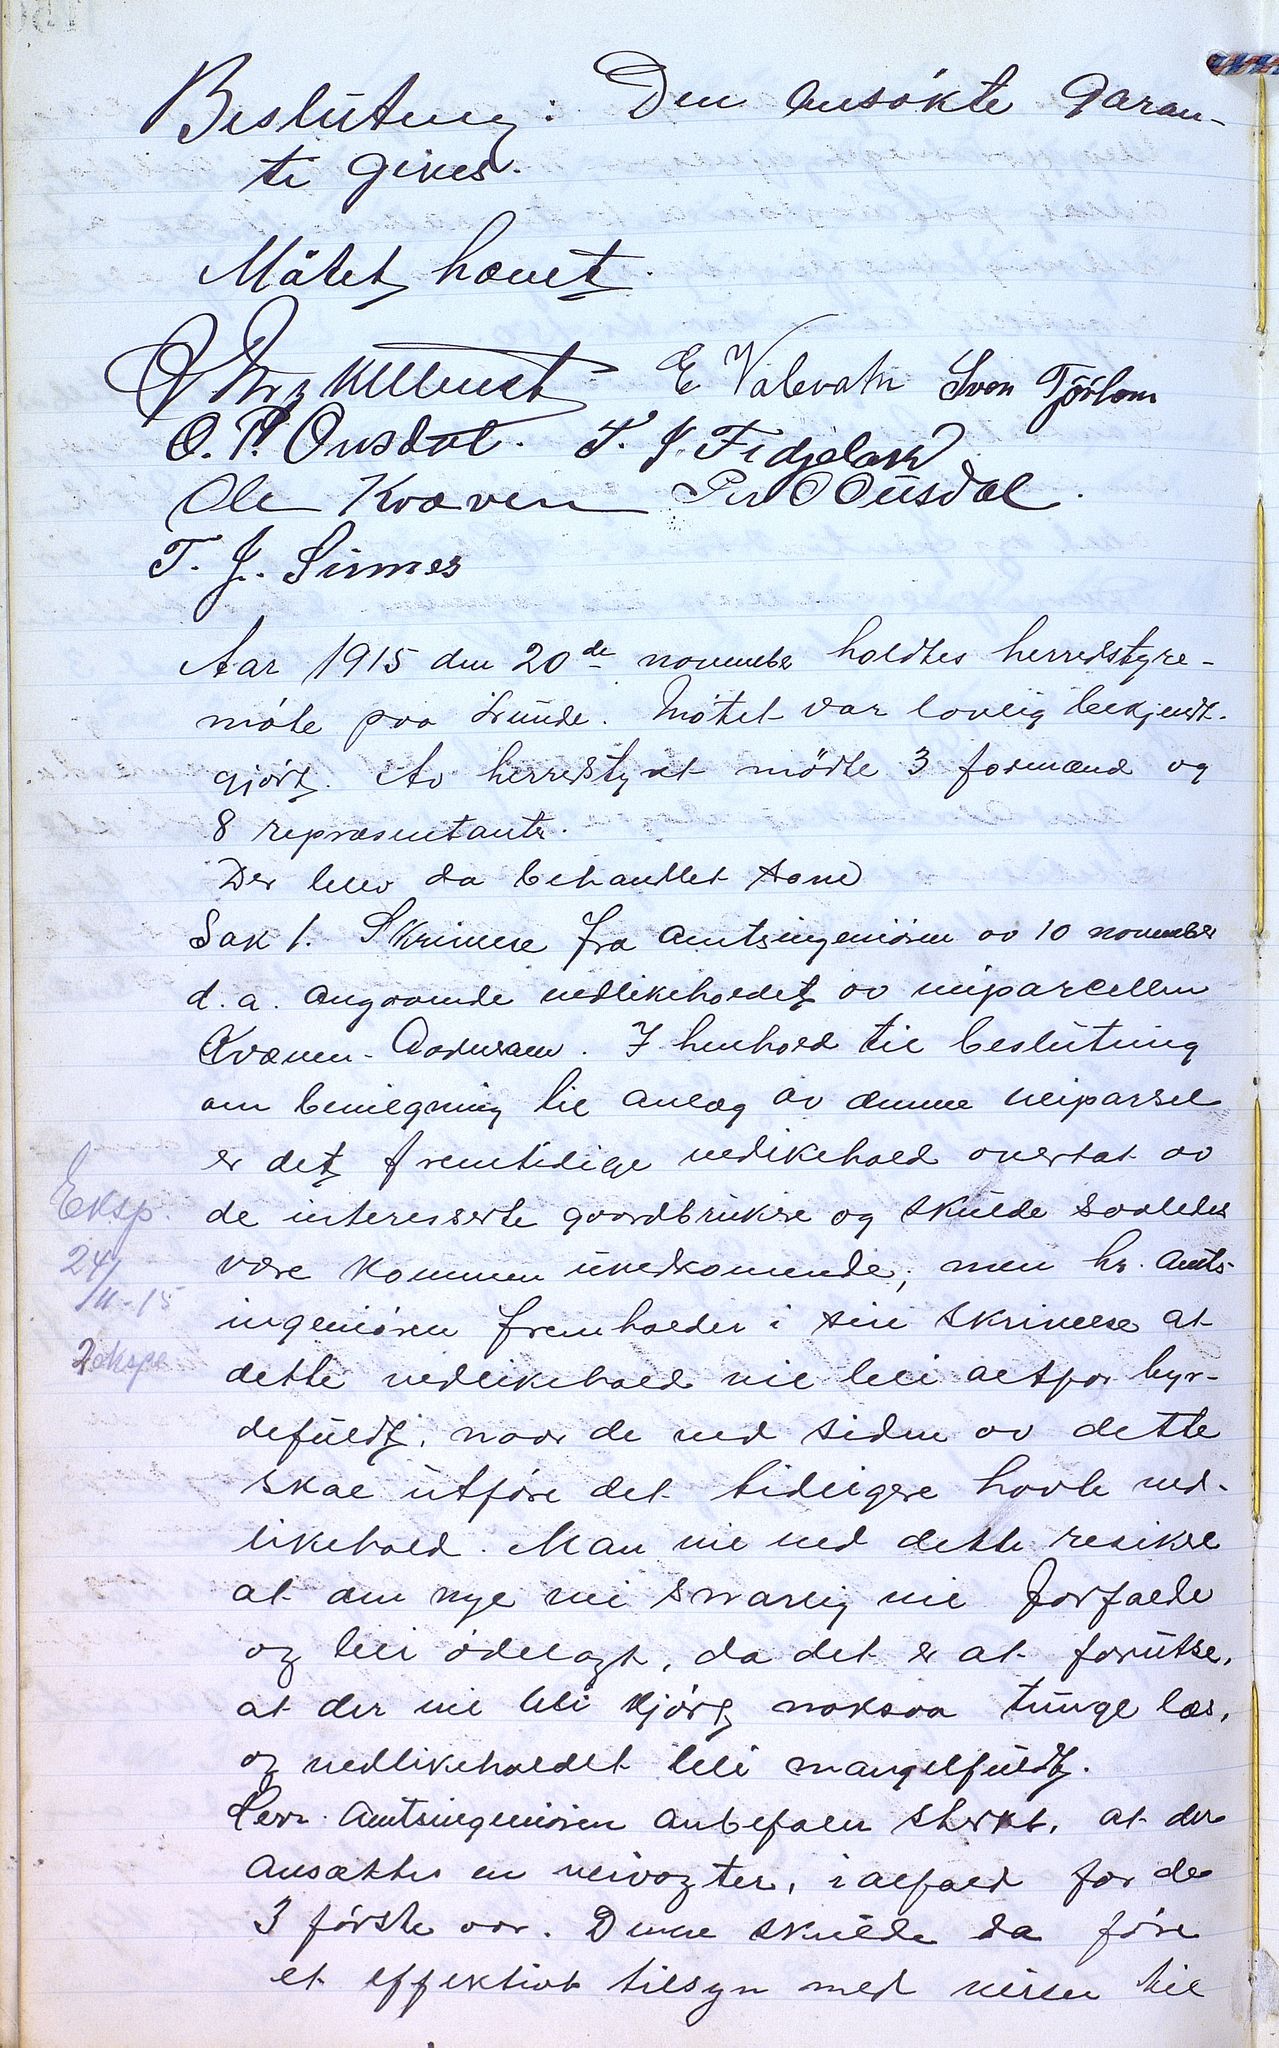 Beslutning: Den ansøkte garan-
ti gives.
Møtet hævet.
E Valevatn Sven Tjørhom
O. P. Ousdal. T. J. Fidjeland
Ole Kvæven Per O Ousdal.
T. J. Sirnes
Aar 1915 den 20de november holdtes herredstyre-
møte paa Lunde. Møtet var lovlig bekjendt-
gjørt. Av herredstyret mødte 3 formænd og
8 repræsentanter.
Der blev da behandlet som
Sak 1. Skrivelse fra amtsingeniøren av 10 november
d.a. angaaende vedlikeholdet av veiparcellen
Kvæven-Aadneram. I henhold til beslutning
om bevilgning til anlæg av denne veiparsel
er det fremtidige vedikehold overtat av
de interesserte gaardbrukere og skulde saaledes
være kommunen uvedkomende, men hr. amts-
ingeniøren fremholder i sin skrivelse at
dette vedlikehold vil bli altfor byr-
defuldt, naar de ved siden av dette
skal utføre det tidligere havte ved-
likehold. Man vil ved dette resikere
at den nye vei snarlig vil forfalde
og bli ødelagt, da det er at forutse,
at der vil bli kjørt noksaa tunge læs,
og vedlikeholdet bli mangelfuldt.
Herr Amtsingeniøren anbefaler sterkt, at der
ansættes en veivogter, ialfald for de
3 første aar. Denne skulde da føre
et effektivt tilsyn med veien til
Eksp.
24/
11-15
2 eksp